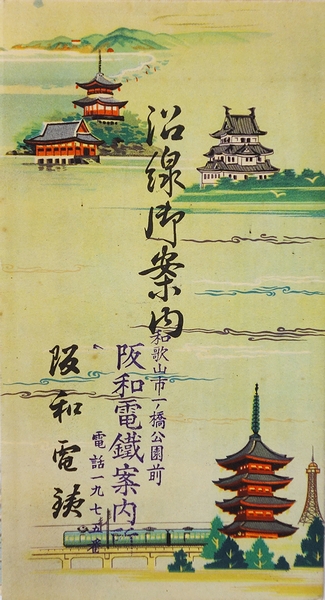 沿線御案内
和歌山市一橋公園前
阪和電鐵案内所
電話一九七五番
阪和電鉄